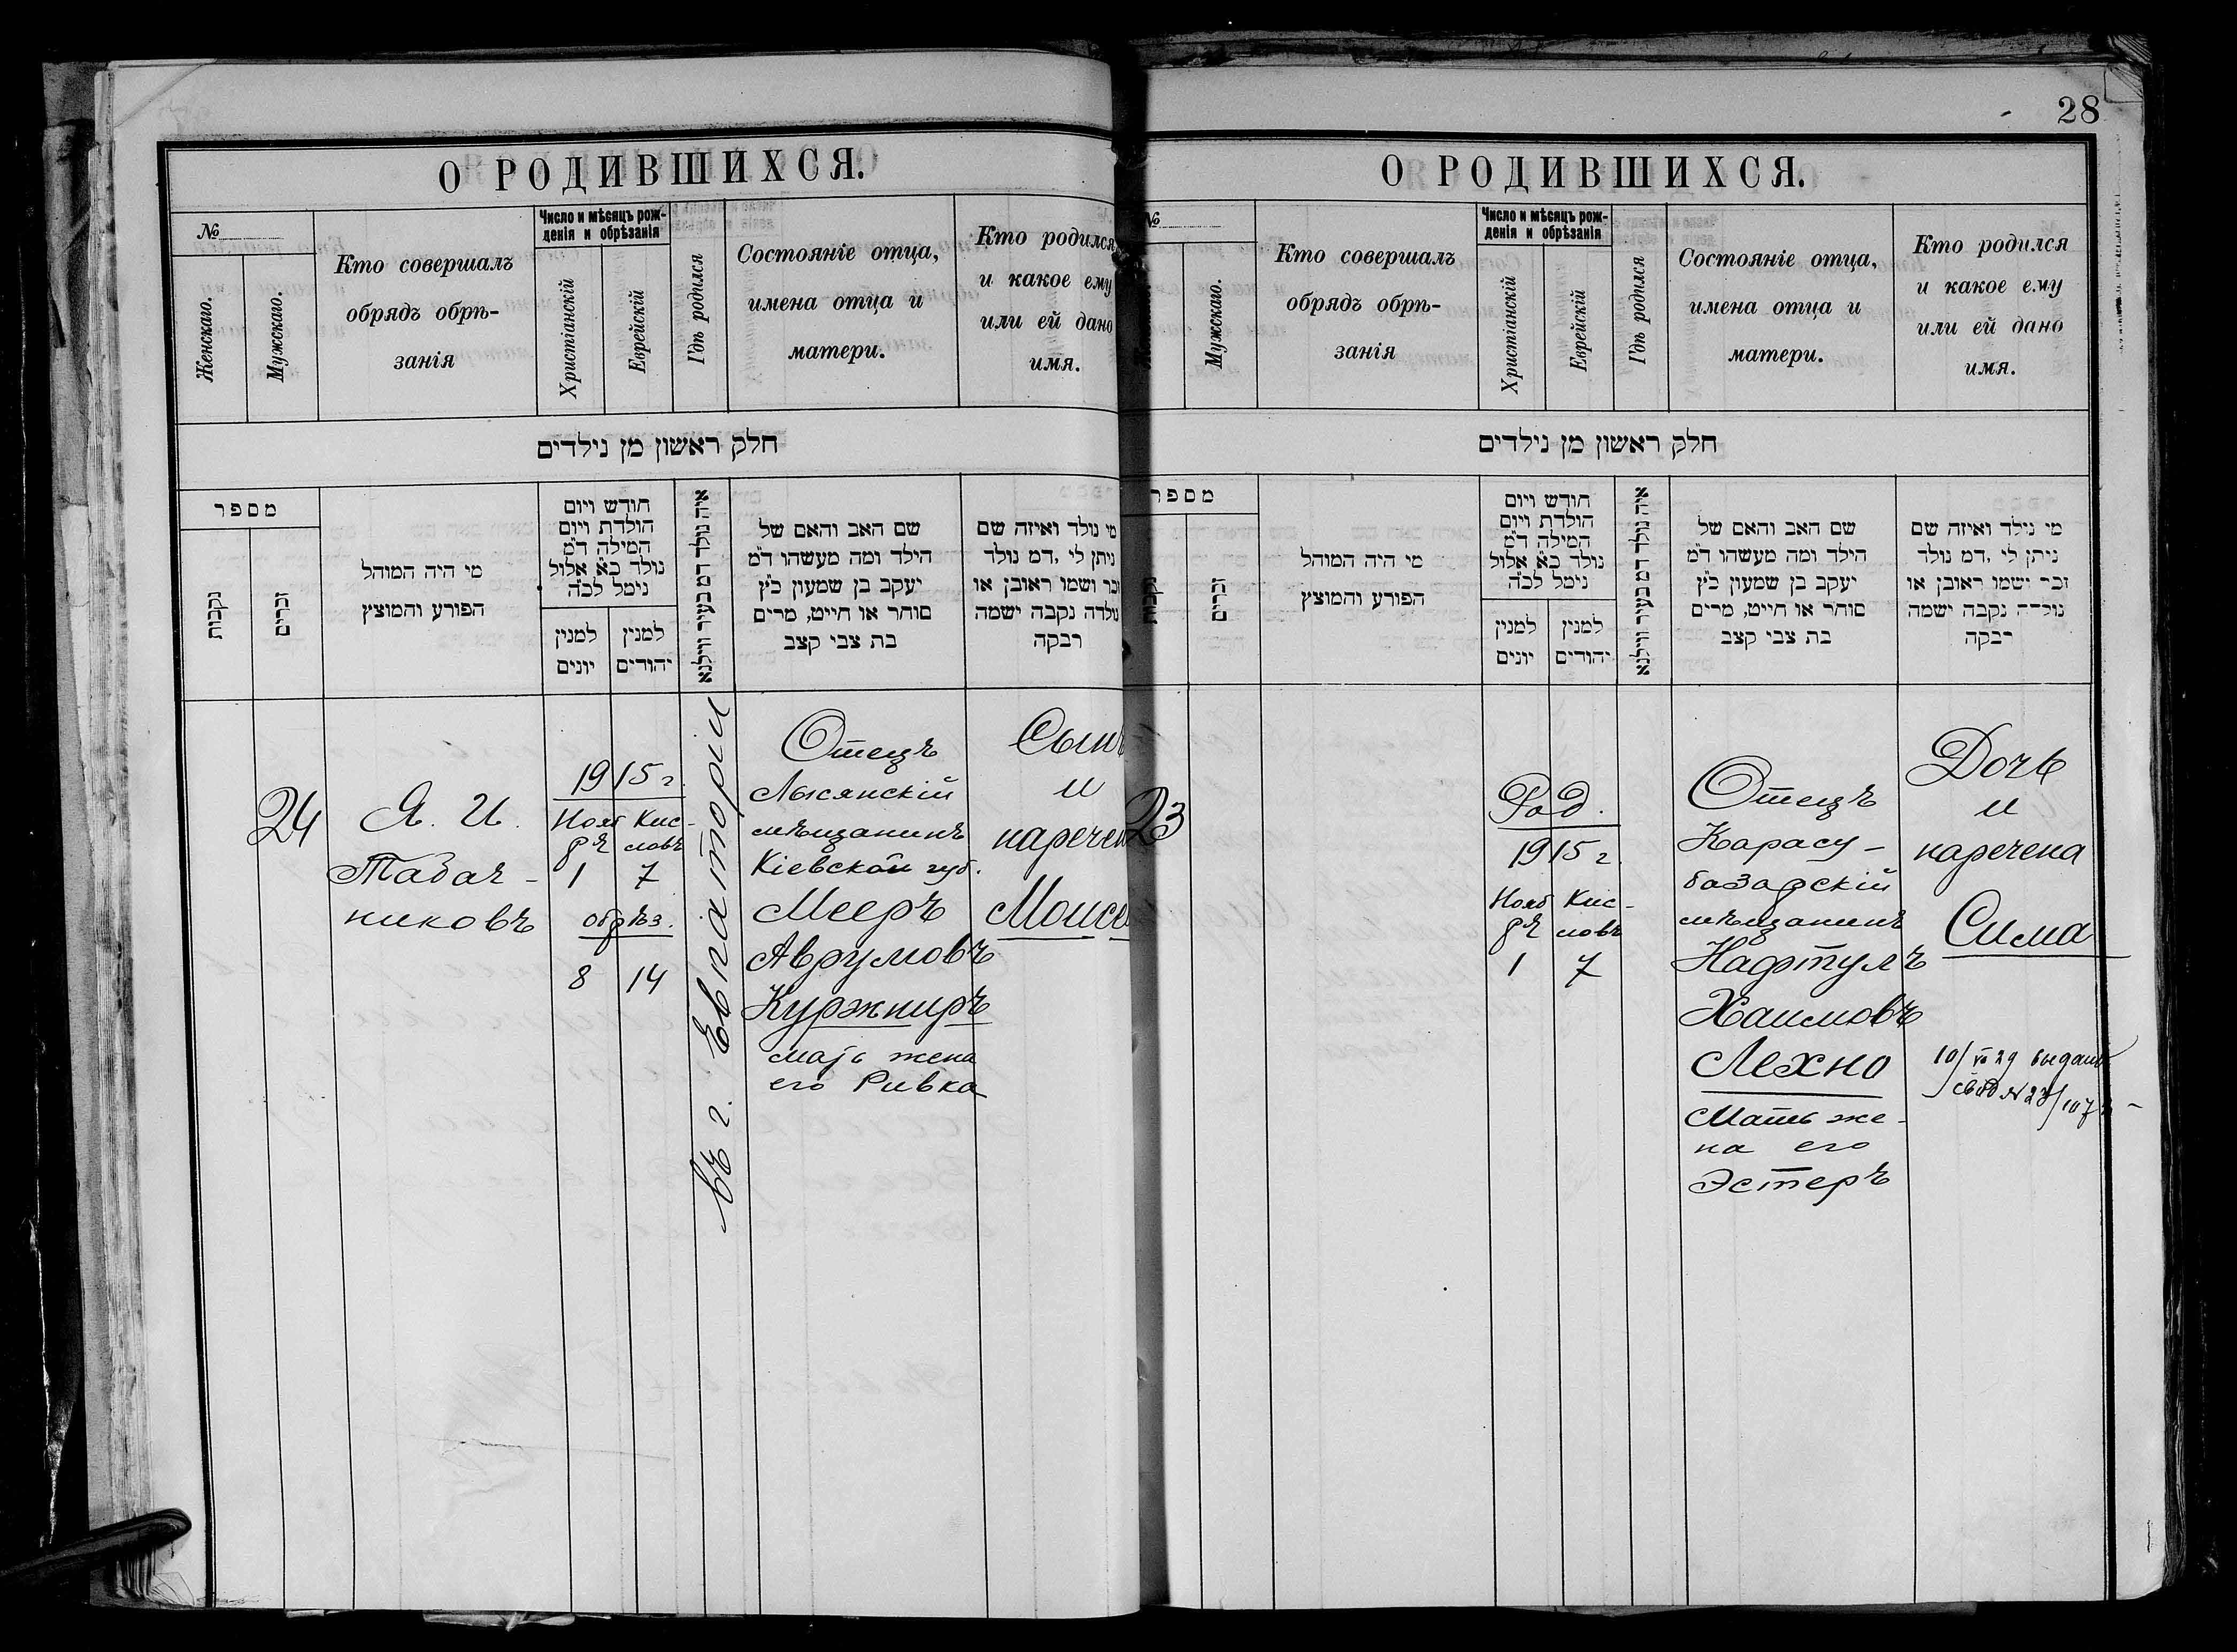 О РОДИВШИХСЯ.
№
Женскаго.
Мужскаго.
Кто совершалъ
обрядъ обрѣ-
занія
Число и мѣсяцъ рож-
денія и обрѣзанія
Христіанскій
Еврейскій
Гдѣ родился
Состояніе отца,
имена отца и
матери.
Кто родился
и какое ему
или ей дано
имя.
חלק ראשון מן נילדים
מספר
נקבות
זכרים
מי היה המוהל
הפורע והמוצץ
חודש ויום
הולדת ויום
המילה ד"מ
נולד כא אלול
נימל לכ"ה
למנין
יונים
למנין
יהודים
איה נולד דמ בעיר ווילנא
שם האב והאם של
הילד ומה מעשהו ד"מ
יעקב בן שמעון כ"ץ
סוחר או חייט, מרים
בת צבי קצב
מי נולד ואיזה שם
ניתן לי ,דמ נולד
זכר ושמו ראובן או
נולדה נקבה ישמה
רבקה
24
Я. И.
Табач-
никовъ
1915 г.
Нояб Кис-
рь словъ
1 7
обрѣз.
8 14
въ г. Евпаторіи
Отецъ
Лысянскій
мѣщанинъ
Кіевской губ.
Мееръ
Аврумовъ
Куржниръ
мать жена
его Ривка
Сынъ
и
наречен
Моисе
28
О РОДИВШИХСЯ.
№
Мужскаго.
Кто совершалъ
обрядъ обрѣ-
занія
Число и мѣсяцъ рож-
денія и обрѣзанія
Христіанскій
Еврейскій
Гдѣ родился
Состояніе отца,
имена отца и
матери.
Кто родился
и какое ему
или ей дано
имя.
חלק ראשון מן נילדים
מספר
נקבות
זכרים
מי היה המוהל
הפורע והמוצץ
חודש ויום
הולדת ויום
המילה ד"מ
נולד כא אלול
נימל לכ"ה
למנין
יונים
למנין
יהודים
איה נולד דמ בעיר ווילנא
שם האב והאם של
הילד ומה מעשהו ד"מ
יעקב בן שמעון כ"ץ
סוחר או חייט, מרים
בת צבי קצב
מי נילד ואיזה שם
ניתן לי ,דמ נולד
זכר ישמו ראובן או
נולדה נקבה ישמה
רבקה
23
Род.
1915 г.
Нояб Кис-
рь словъ
1 7
Отецъ
Карасу-
базарскій
мѣщанинъ
Нафтулъ
Хаимовъ
Лехно
Мать же-
на его
Эстеръ
Дочь
и
наречена
Сима